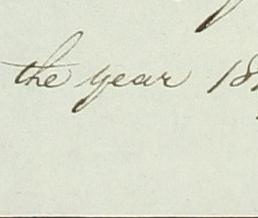 the year 18